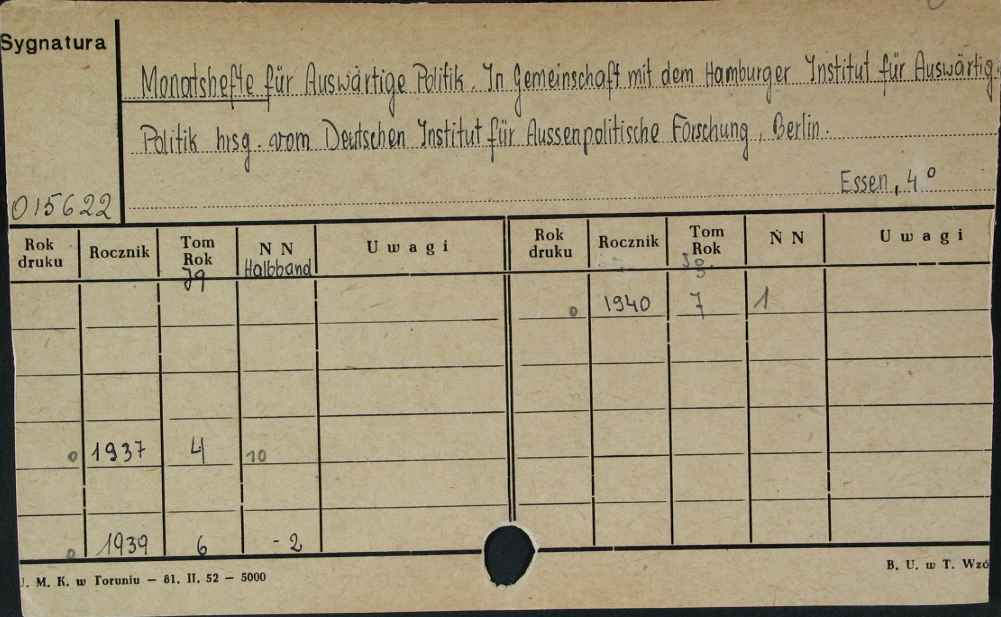 Sygnatura
Monatshefte für Auswärtige Politik. In Gemeinschaft mit dem Hamburger Institut für Auswärtig.
Politik hrsg. vom Deutschen Institut für Aussenpolitische Forschung, Berlin.
Essen, 4°
015622
Rok druku Rocznik Tom Rok NN Uwagi Rok druku Rocznik Tom Rok NN Uwagi
Jg Halbband Jg.
o 1940 7 1
o 1937 4 10
o 1939 6 - 2
U. M. K. w Toruniu — 81. II. 52 — 5000
B. U. w T. Wzó